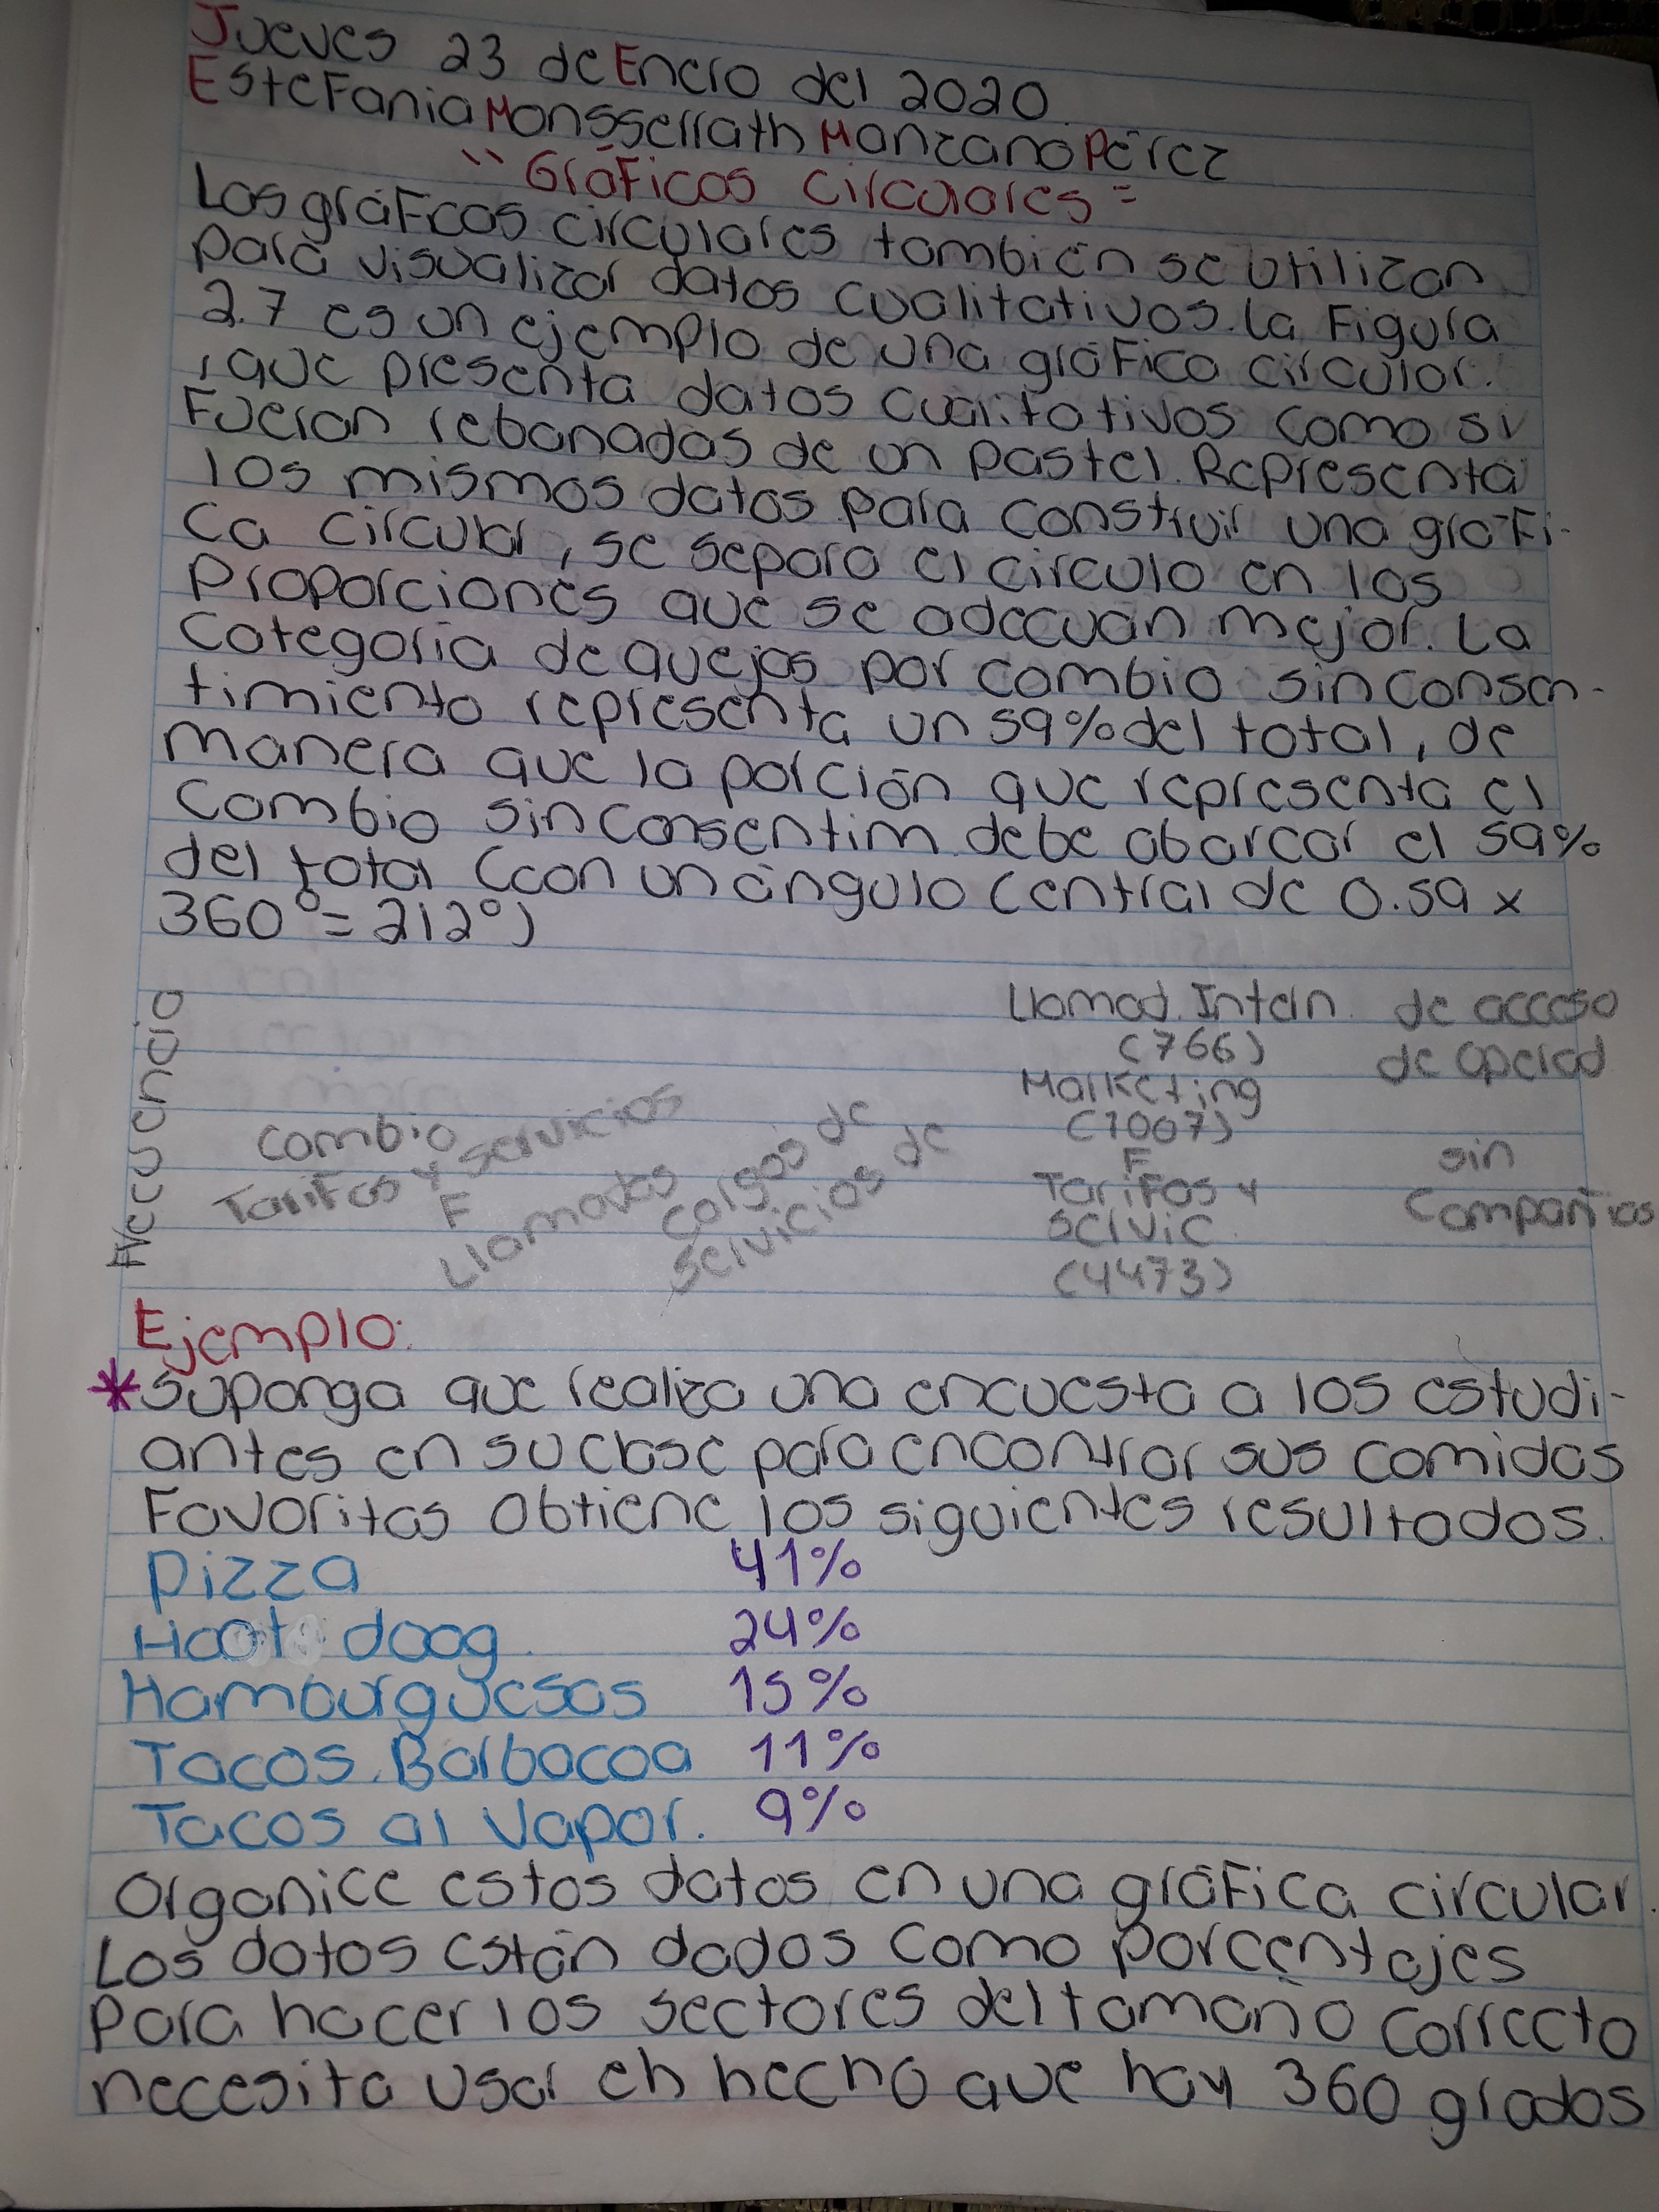 Jueves 23 de Enero del 2020.
Estefania Monsserrath Manzano Pérez
"Gráficos Circulares"
Los gráficos circulares también se utilizan
para visualizar datos cualitativos. La Figura
2.7 es un ejemplo de una gráfico circular.
, que presenta datos cualitativos como si
Fueran rebanadas de un pastel. Representa
los mismos datos para construir una gráfi-
ca circular, se separa el circulo en las
Proporciones que se adecuan mejor. La
Categoria de quejas por cambio sin consen-
timiento representa un 59% del total, de
manera que la porción que representa el
Cambio sin consentim. debe abarcar el 59%
del total (con un ángulo central de 0.59 x
360° = 212°)
Frecuencia
Cambio
Tarifas y servicios
F
Llamadas
Cargos de
Servicios de
Llamad. Intern.
(766)
Marketing
(1007)
F
Tarifas y
Servic.
(4473)
de acceso
de operad
sin
Compañias
Ejemplo:
*Suponga que realiza una encuesta a los estudi-
antes en su clase para encontrar sus comidas
Favoritas obtiene los siguientes resultados.
Pizza 41%
Hoot doog. 24%
Hamburguesas 15%
Tacos. Barbacoa 11%
Tacos al vapor. 9%
Organice estos datos en una gráfica circular.
Los datos están dados como porcentajes
Para hacer los sectores del tamaño correcto
necesita usar eh hecho que hay 360 grados